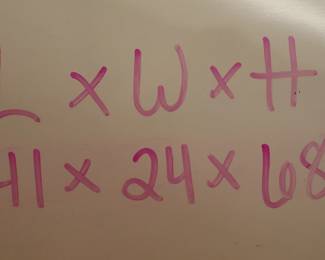 L x W x H
41 x 24 x 68